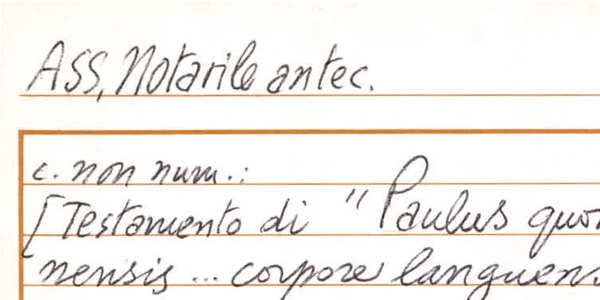 ASS, Notarile antec.
c. non num.:
[Testamento di "Paulus quo
nensis ... corpore languens